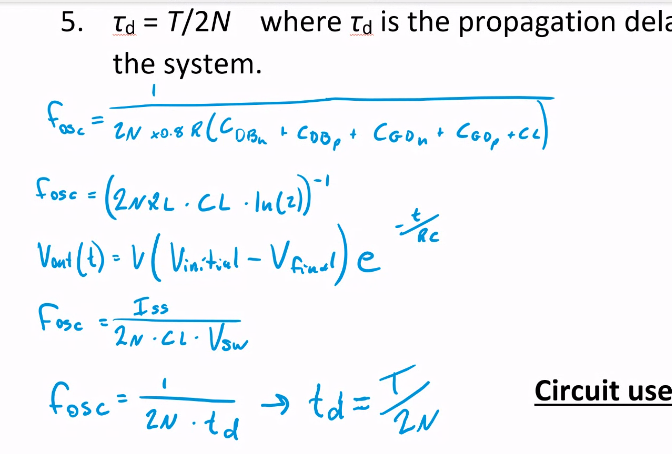 5. τd = T/2N where τd is the propagation dela
the system.
fosc = 1 / 2N x0.8 R(CDBn + CDBp + CGDn + CGDp + CL)
fosc = (2NRL · CL · ln(2))^-1
Vout(t) = V(Vinitial - Vfinal) e^-t/RC
Fosc = Iss / 2N · CL · Vsw
fosc = 1 / 2N · td → td = T/2N
Circuit use